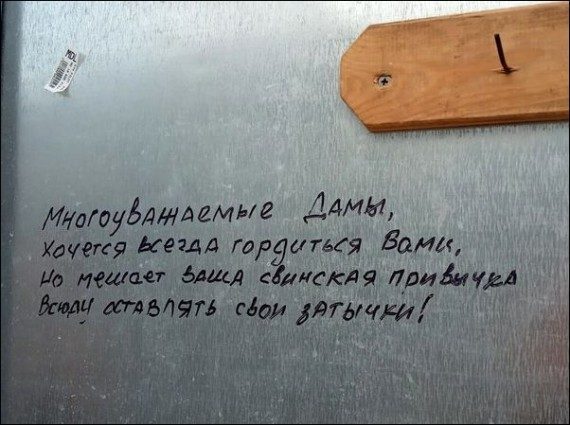 Многоуважаемые Дамы,
Хочется всегда гордиться Вами,
Но мешает ваша свинская привычка
Всюду оставлять свои затычки!